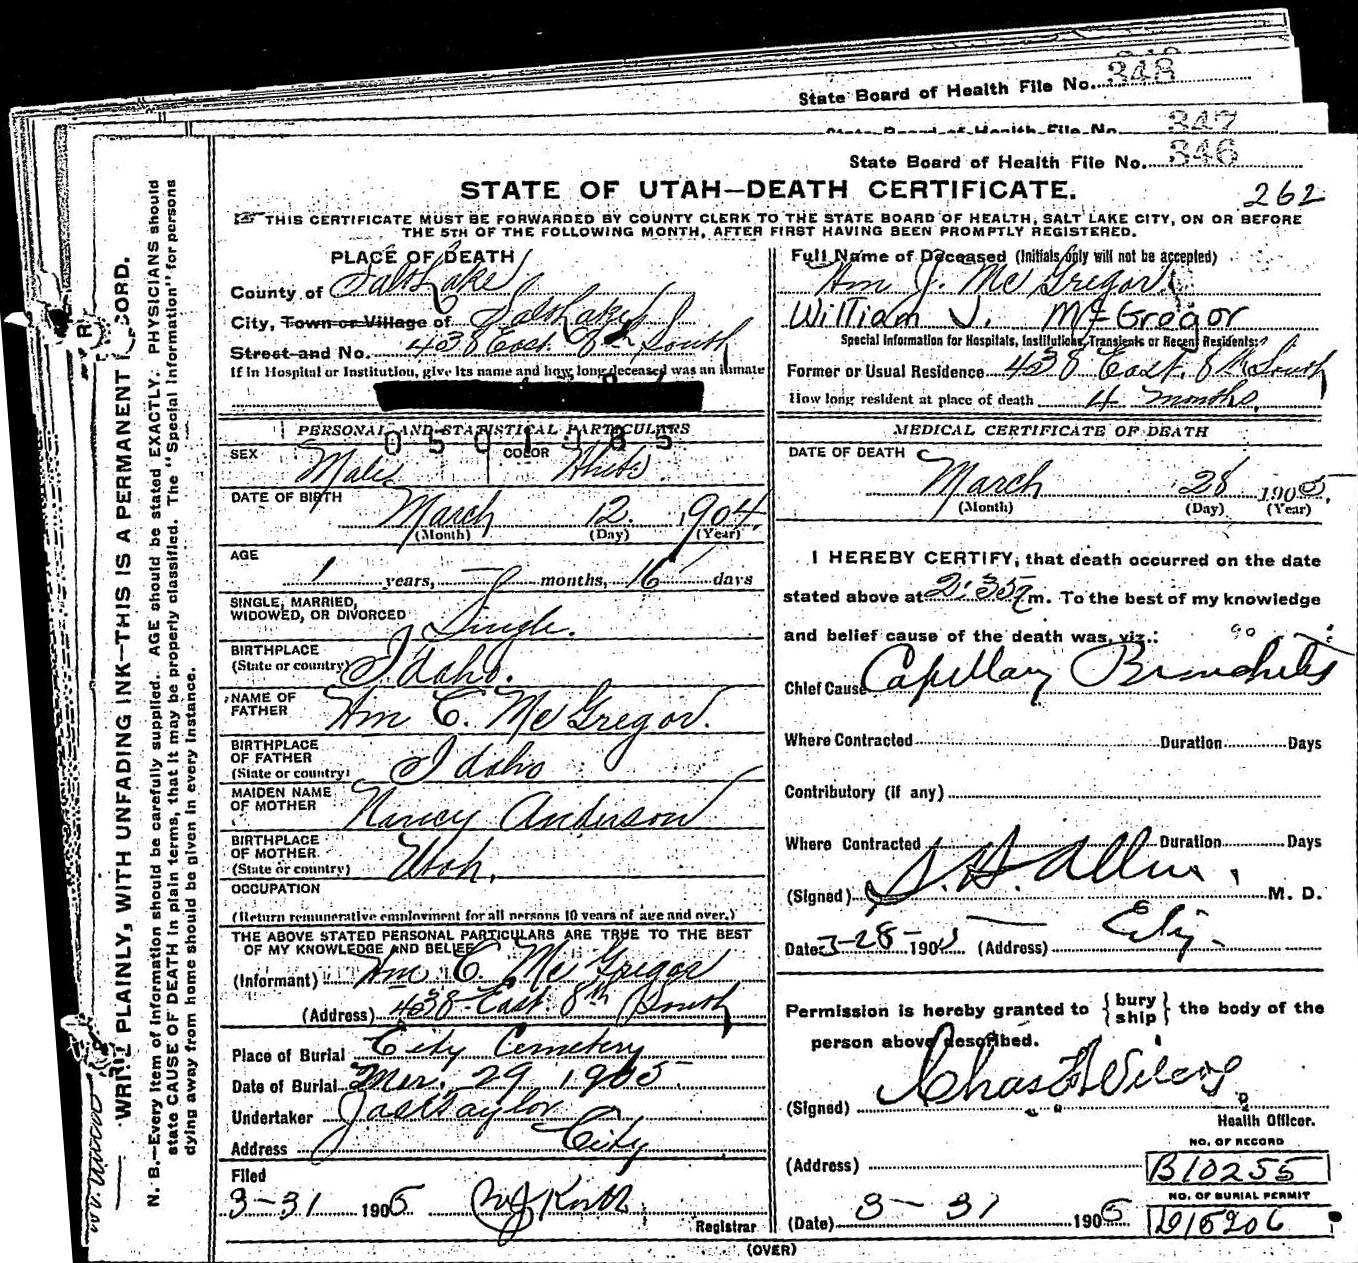 State Board of Health File No. 348
State Board of Health File No. 347
State Board of Health File No. 346
STATE OF UTAH—DEATH CERTIFICATE. 262
THIS CERTIFICATE MUST BE FORWARDED BY COUNTY CLERK TO THE STATE BOARD OF HEALTH, SALT LAKE CITY, ON OR BEFORE
THE 5TH OF THE FOLLOWING MONTH, AFTER FIRST HAVING BEEN PROMPTLY REGISTERED.
PLACE OF DEATH
County of Salt Lake
City, Town or Village of Salt Lake
Street and No. 438 East 8th South
If in Hospital or Institution, give its name and how long deceased was an inmate
PERSONAL AND STATISTICAL PARTICULARS
0501985
SEX Male COLOR White
DATE OF BIRTH
March 12. 1904.
(Month) (Day) (Year)
AGE
1 years, — months, 16 days
SINGLE, MARRIED,
WIDOWED, OR DIVORCED Single.
BIRTHPLACE
(State or country) Idaho.
NAME OF
FATHER Wm C. McGregor.
BIRTHPLACE
OF FATHER
(State or country) Idaho
MAIDEN NAME
OF MOTHER Nancy Anderson
BIRTHPLACE
OF MOTHER
(State or country) Utah.
OCCUPATION
(Return remunerative employment for all persons 10 years of age and over.)
THE ABOVE STATED PERSONAL PARTICULARS ARE TRUE TO THE BEST
OF MY KNOWLEDGE AND BELIEF
(Informant) Wm. C. McGregor
(Address) 438 East 8th South
Place of Burial City Cemetery
Date of Burial Mar. 29 1905.
Undertaker Jas Taylor
Address City
Filed
3-31 1905
Registrar
Full Name of Deceased (Initials only will not be accepted)
Wm J. McGregor.
William J. McGregor
Special Information for Hospitals, Institutions, Transients or Recent Residents:
Former or Usual Residence 438 East. 8th South
How long resident at place of death 4 months.
MEDICAL CERTIFICATE OF DEATH
DATE OF DEATH
March 28 1905.
(Month) (Day) (Year)
I HEREBY CERTIFY, that death occurred on the date
stated above at 2:35 m. To the best of my knowledge
and belief cause of the death was, viz.: 90
Chief Cause Capillary Bronchitis
Where Contracted Duration Days
Contributory (if any)
Where Contracted Duration Days
(Signed) S. H. Allen. M. D.
Date 3-28-1905 (Address) City-
Permission is hereby granted to {bury ship} the body of the
person above described.
(Signed) Chas F Wilcox
Health Officer.
NO. OF RECORD
(Address) B10255
NO. OF BURIAL PERMIT
(Date) 3-31 1905 D15206
(OVER)
WRITE PLAINLY, WITH UNFADING INK—THIS IS A PERMANENT RECORD.
N. B.—Every item of information should be carefully supplied. AGE should be stated EXACTLY. PHYSICIANS should
state CAUSE OF DEATH in plain terms, that it may be properly classified. The "Special Information" for persons
dying away from home should be given in every instance.